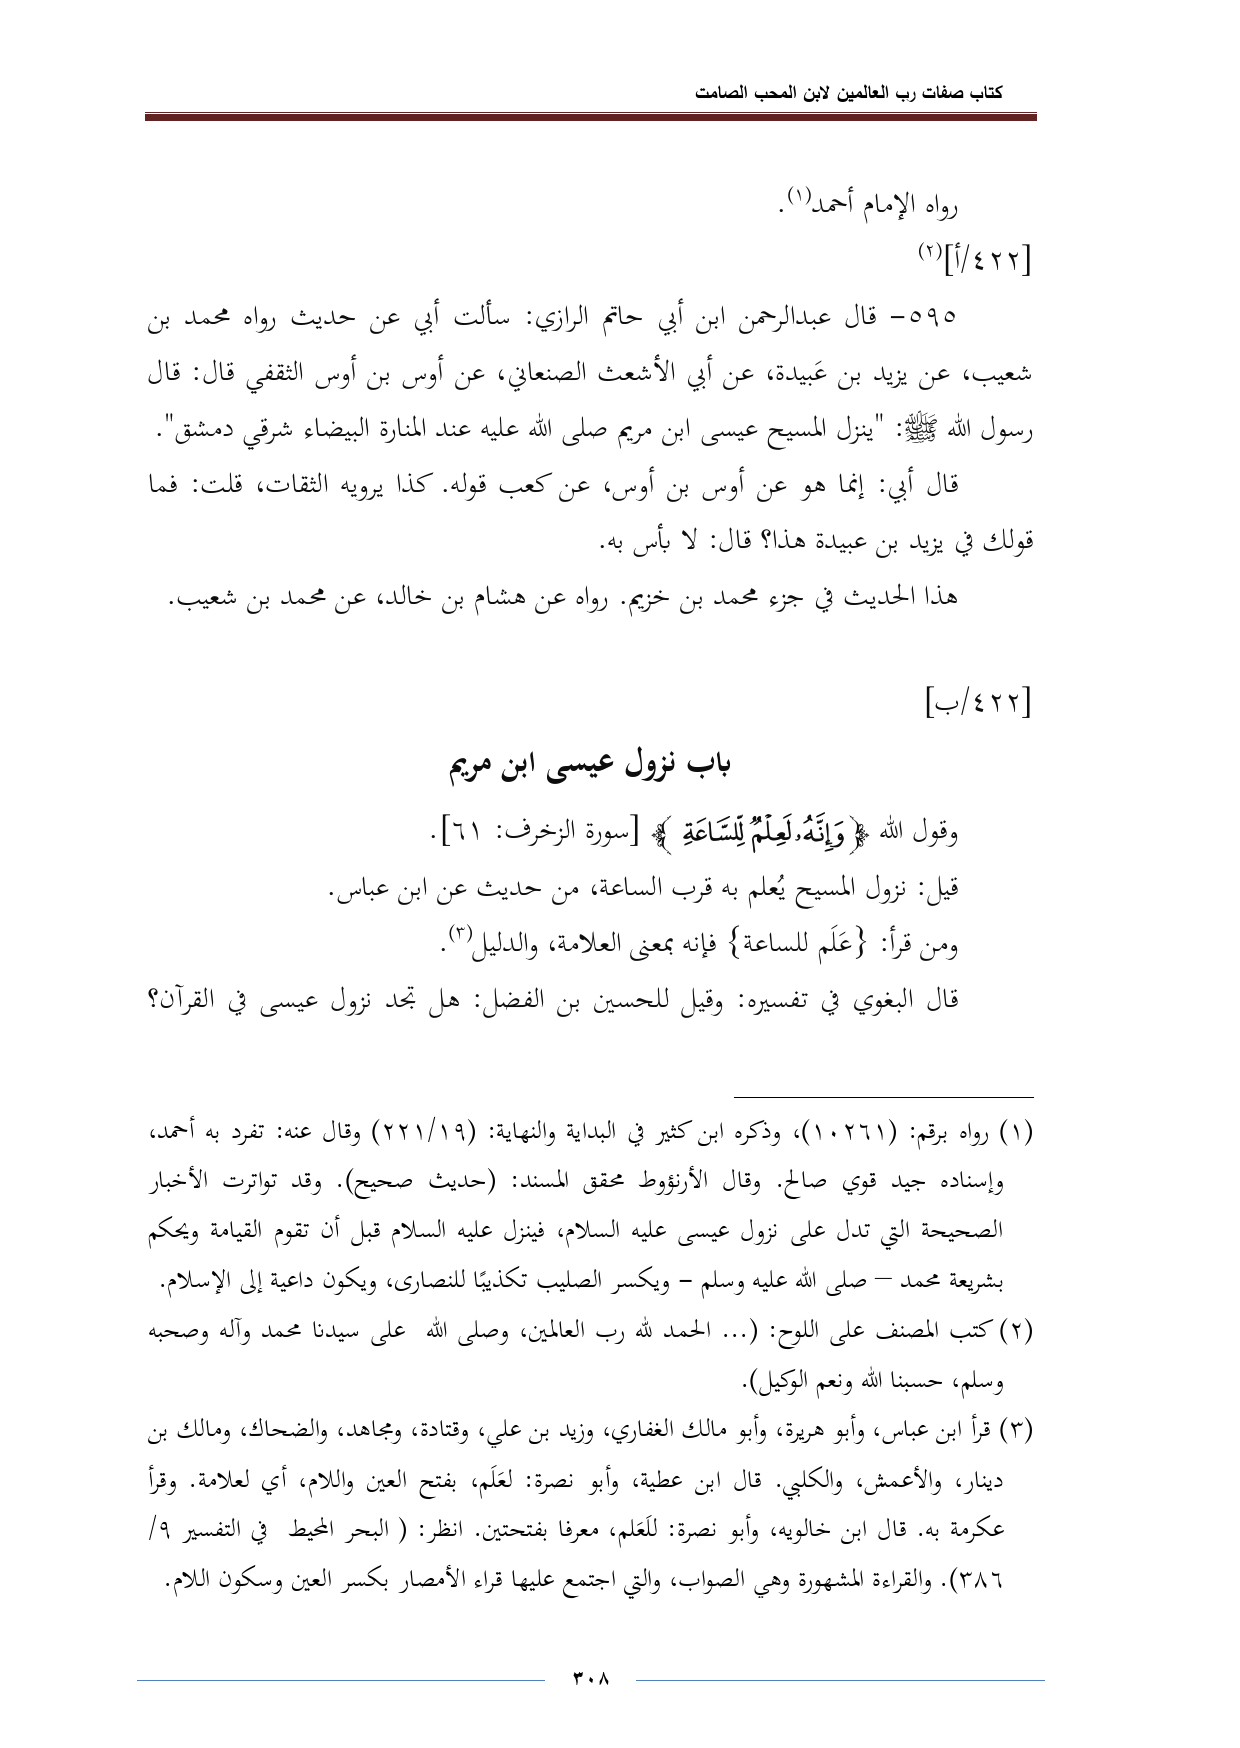 كتاب صفات رب العالمين لابن المحب الصامت
رواه الإمام أحمد(١).
[٤٢٢/أ](٢)
٥٩٥- قال عبدالرحمن ابن أبي حاتم الرازي: سألت أبي عن حديث رواه محمد بن
شعيب، عن يزيد بن عَبيدة، عن أبي الأشعث الصنعاني، عن أوس بن أوس الثقفي قال: قال
رسول الله ﷺ: "ينزل المسيح عيسى ابن مريم صلى الله عليه عند المنارة البيضاء شرقي دمشق".
قال أبي: إنما هو عن أوس بن أوس، عن كعب قوله. كذا يرويه الثقات، قلت: فما
قولك في يزيد بن عبيدة هذا؟ قال: لا بأس به.
هذا الحديث في جزء محمد بن خزيم. رواه عن هشام بن خالد، عن محمد بن شعيب.
[٤٢٢/ب]
باب نزول عيسى ابن مريم
وقول الله ﴿وَإِنَّهُۥ لَعِلْمٌ لِّلسَّاعَةِ ﴾ [سورة الزخرف: ٦١].
قيل: نزول المسيح يُعلم به قرب الساعة، من حديث عن ابن عباس.
ومن قرأ: {عَلَم للساعة} فإنه بمعنى العلامة، والدليل(٣).
قال البغوي في تفسيره: وقيل للحسين بن الفضل: هل تجد نزول عيسى في القرآن؟
(١) رواه برقم: (١٠٢٦١)، وذكره ابن كثير في البداية والنهاية: (٢٢١/١٩) وقال عنه: تفرد به أحمد،
وإسناده جيد قوي صالح. وقال الأرنؤوط محقق المسند: (حديث صحيح). وقد تواترت الأخبار
الصحيحة التي تدل على نزول عيسى عليه السلام، فينزل عليه السلام قبل أن تقوم القيامة ويحكم
بشريعة محمد – صلى الله عليه وسلم – ويكسر الصليب تكذيبًا للنصارى، ويكون داعية إلى الإسلام.
(٢) كتب المصنف على اللوح: (... الحمد لله رب العالمين، وصلى الله على سيدنا محمد وآله وصحبه
وسلم، حسبنا الله ونعم الوكيل).
(٣) قرأ ابن عباس، وأبو هريرة، وأبو مالك الغفاري، وزيد بن علي، وقتادة، ومجاهد، والضحاك، ومالك بن
دينار، والأعمش، والكلبي. قال ابن عطية، وأبو نصرة: لعَلَم، بفتح العين واللام، أي لعلامة. وقرأ
عكرمة به. قال ابن خالويه، وأبو نصرة: للَعَلم، معرفا بفتحتين. انظر: ( البحر المحيط في التفسير ٩/
٣٨٦). والقراءة المشهورة وهي الصواب، والتي اجتمع عليها قراء الأمصار بكسر العين وسكون اللام.
٣٠٨